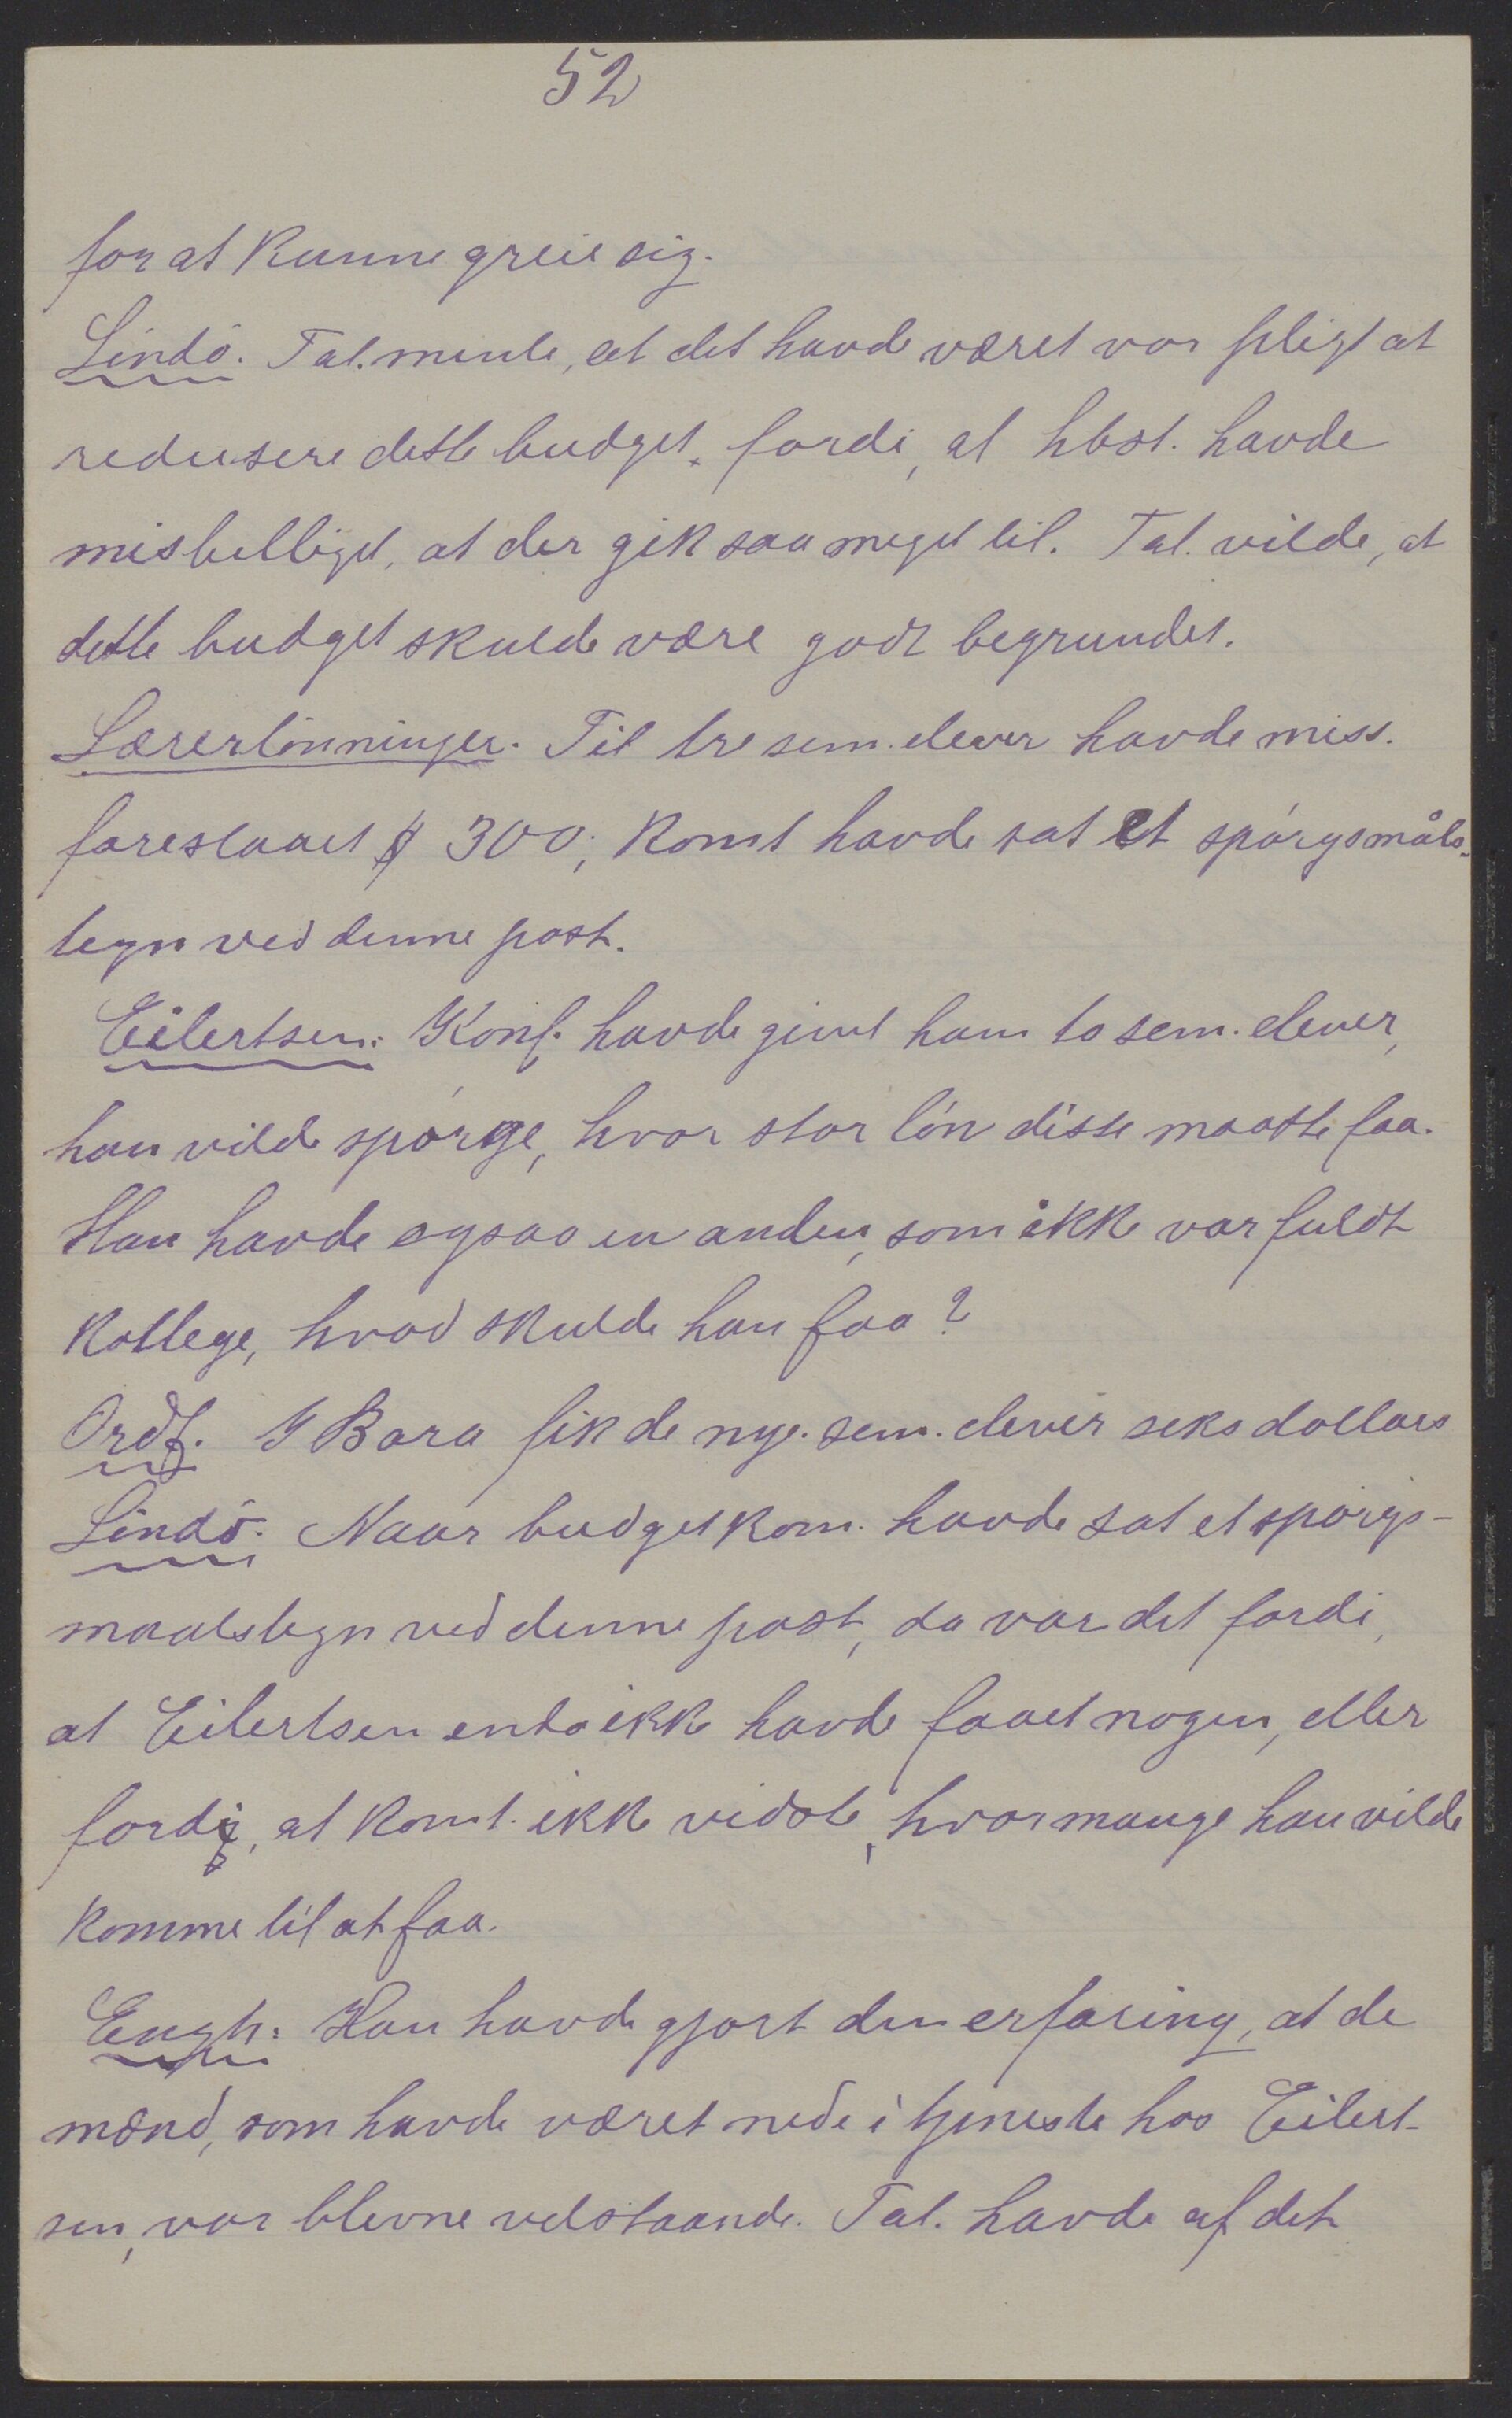 52
for at kunne greie sig.
Lindö. Tal. mente, at det havde været vor pligt at
redusere dette budget, fordi, at hbst. havde
misbilliget, at der gik saa meget til. Tal. vilde, at
dette budget skulde være godt begrundet.
Lærerlönninger. Til tre sem. elever havde miss.
foreslaaet $ 300; Komt havde sat et spörgsmåls-
tegn ved denne post.
Eilertsen: Konf. havde givet ham to sem. elever,
han vilde spörge, hvor stor lön disse maatte faa.
Han havde ogsaa en anden, som ikke var fuldt
kollege, hvad skulde han faa?
Ordf. I Bara fik de nye sem. elever seks dollars
Lindö: Naar budgetkom. havde sat et spörgs-
maalstegn ved denne post, da var det fordi,
at Eilertsen enda ikke havde faaet nogen, eller
fordi, at komt. ikke vidste, hvormange han vilde
komme til at faa.
Engh: Han havde gjort den erfaring, at de
mænd, som havde været nede i tjeneste hos Eilert-
sen, var blevne velstaande. Tal. havde af det